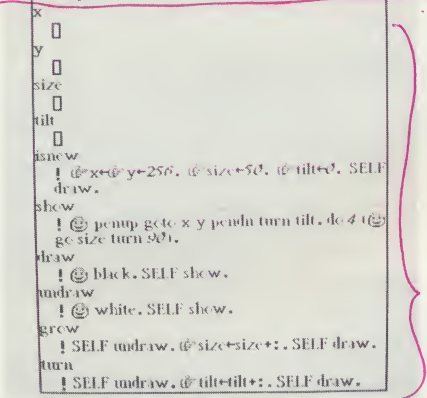 x
▯
y
▯
size
▯
tilt
▯
isnew
! ☞x←☞y←256. ☞size←50. ☞tilt←0. SELF
draw.
show
! ☺ penup goto x y pendn turn tilt. do 4 (☺
go size turn 90).
draw
! ☺ black. SELF show.
undraw
! ☺ white. SELF show.
grow
! SELF undraw. ☞size←size+:. SELF draw.
turn
! SELF undraw. ☞tilt←tilt+:. SELF draw.